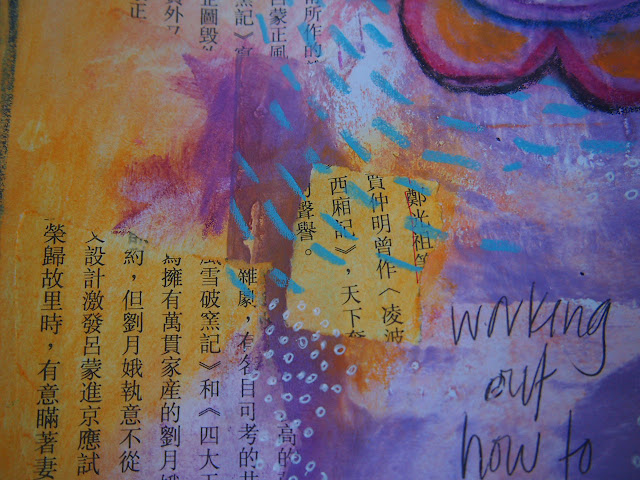 所作的
呂蒙正風
窯記》
正圖毀
外
正
鄭光祖
賈仲明曾作〈凌波
西廂記》，天下
聲譽。
高的
雜劇，有名目可考的共
風雪破窯記》和《四大
為擁有萬貫家產的劉月娥
約，但劉月娥執意不從
設計激發呂蒙進京應試
榮歸故里時，有意瞞著妻
working
out
how to